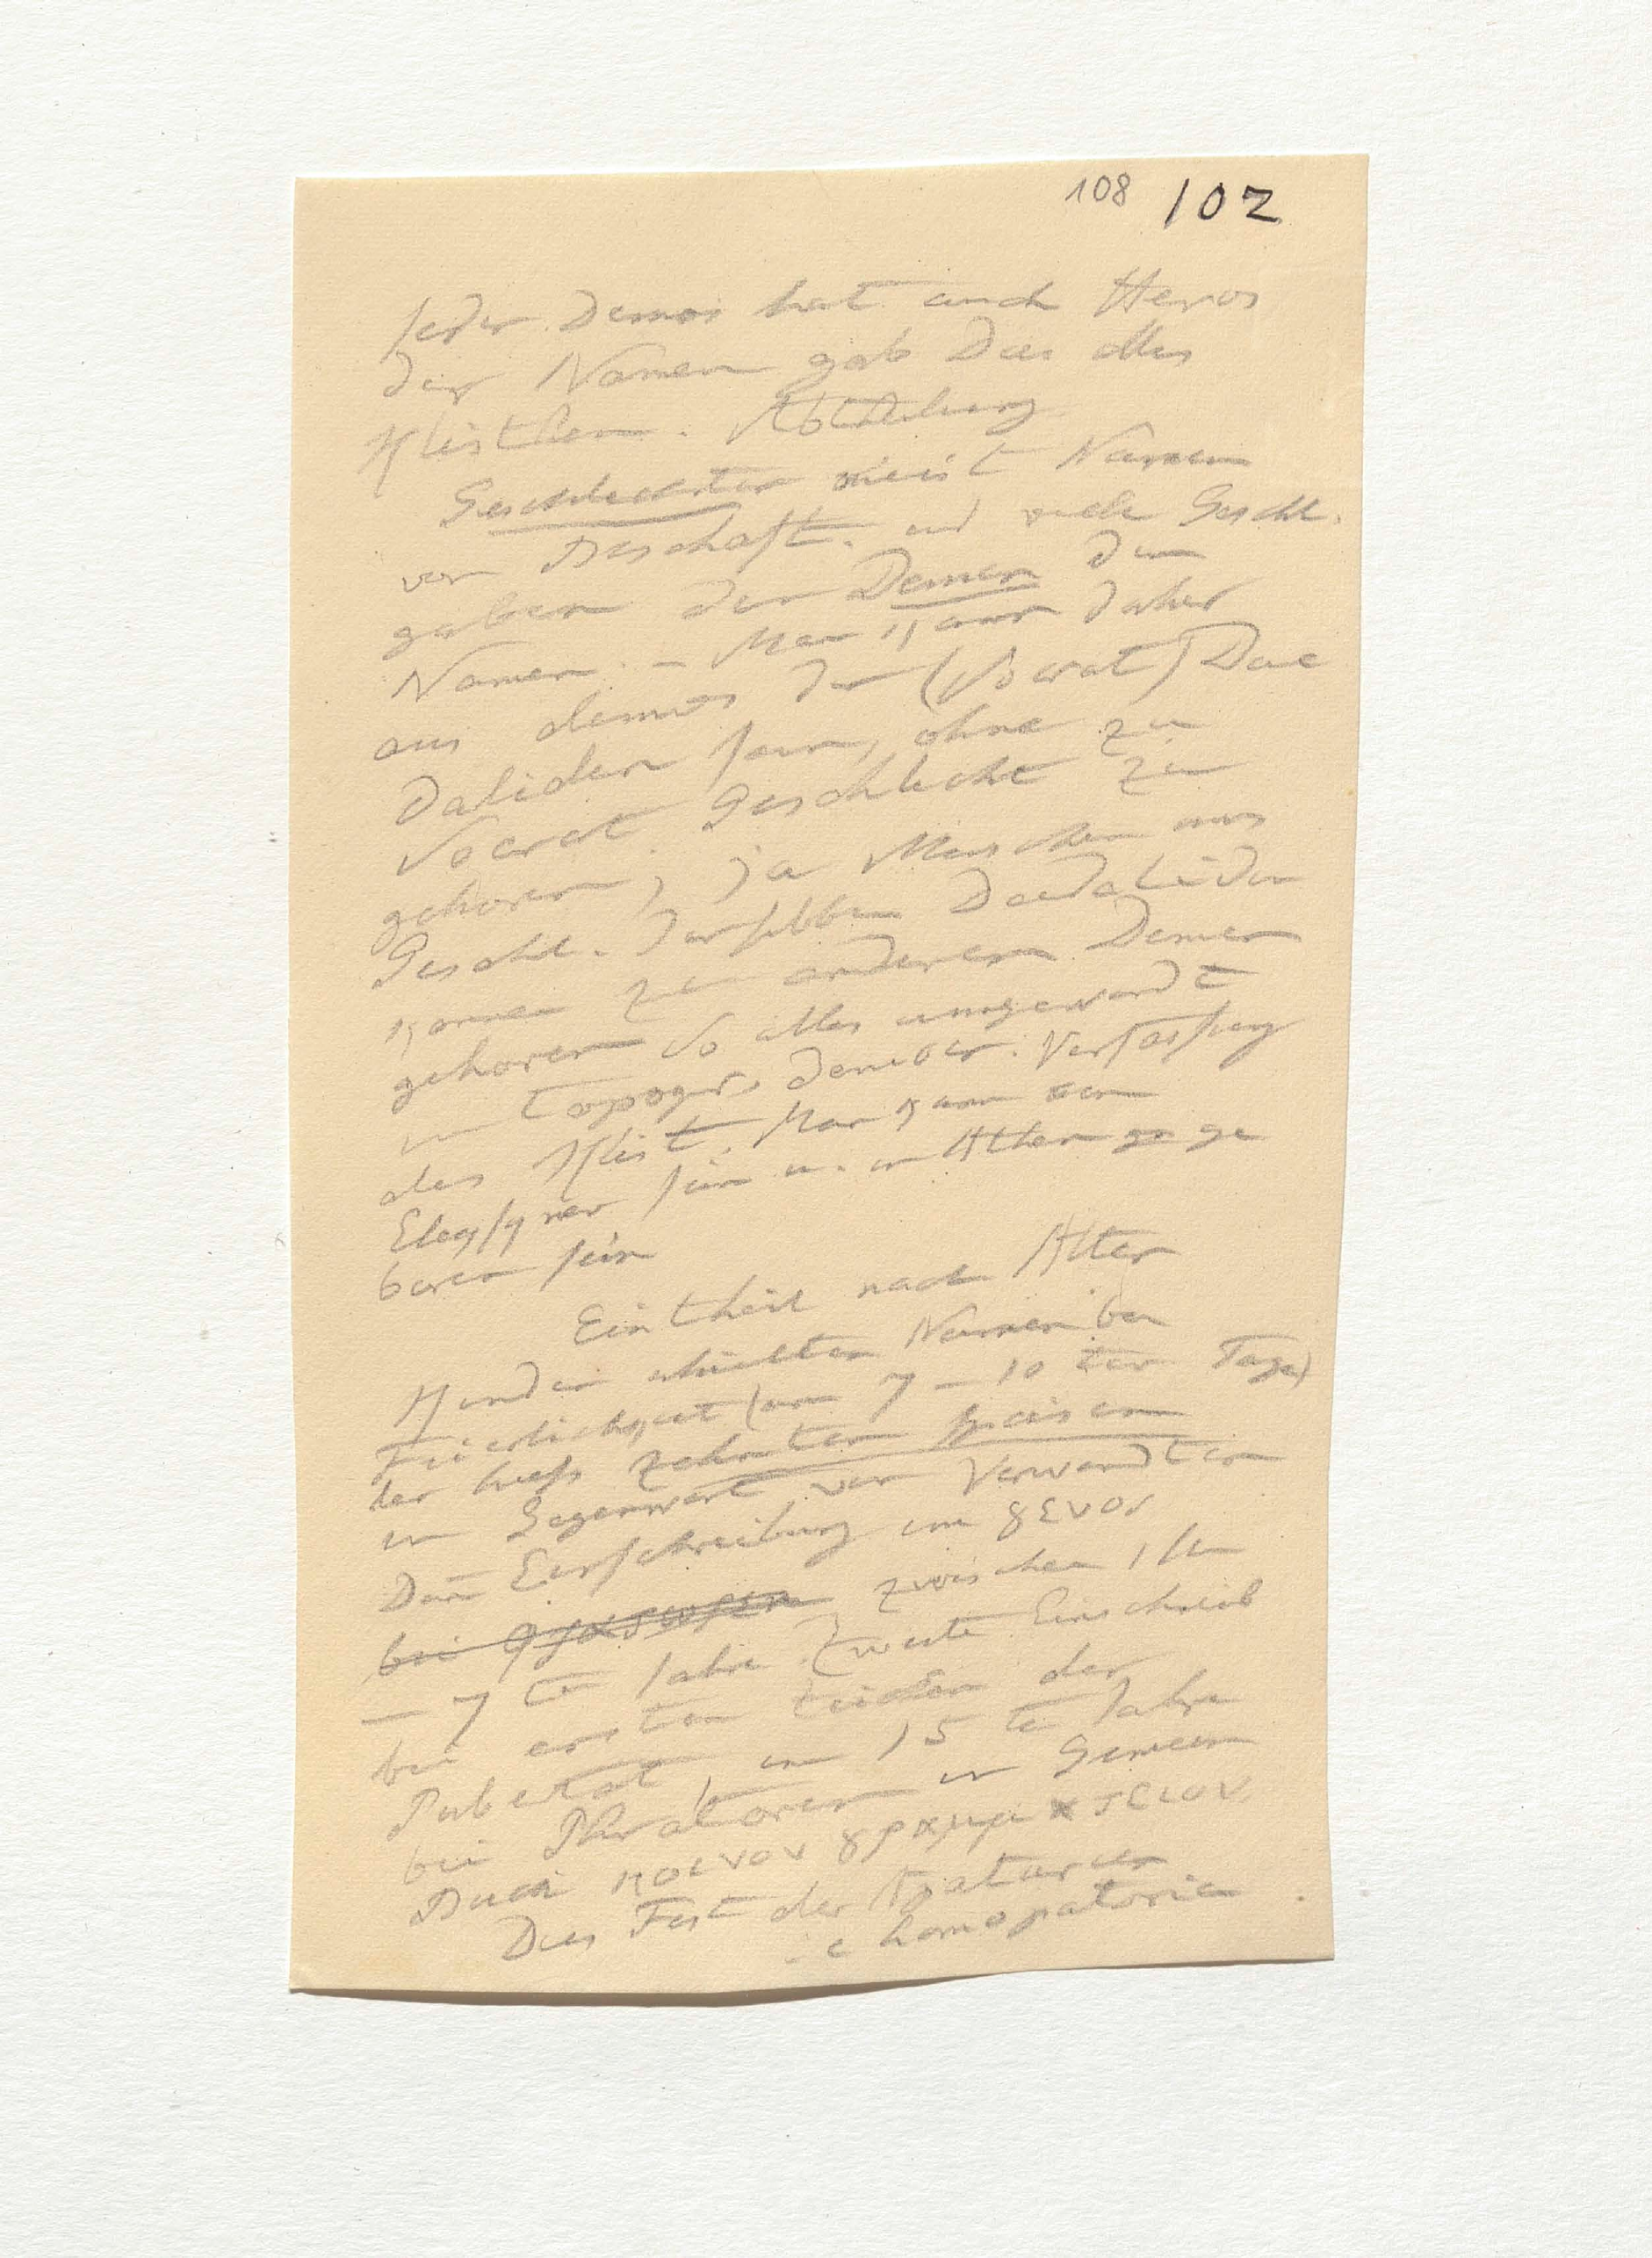 108 102
jeder Demos hat auch Heros
der Namen gab Das alles
Klisthen. Abtheilung
Geschlechter meist Namen
von Beschäft. und viele Geschl.
gaben den Demen den
Namen. – Man kann daher
aus demos der (Socrat) Dae
daliden sein, ohne zu
Socrat. Geschlecht zu
gehoren, ja Menschen aus
Geschl. derselben Daedaliden
konen zu anderem Demen
gehoren So alles umgewandt
in topogr. democr. Verfassung
des Klist. Man kann ein
sein u. in Athen ge ge
boren sein
Eintheil nach Alter
Kinder erhielten Namen bei
Feierlichkeit (am 7 – 10 ten Tage)
der hiess zehnten
in Gegenwart von Verwandten
Dañ Einschreibung im γενος
bei zwischen 1 sten
– 7 ten Jahre. Zweite Einschreib
bei ersten Zeichen der
Pubertät, im 15 ten Jahre
bei Phratoren in Gemein
Buch κοινον γραμματειον
Dies Fest der Apaturien
homopatoria